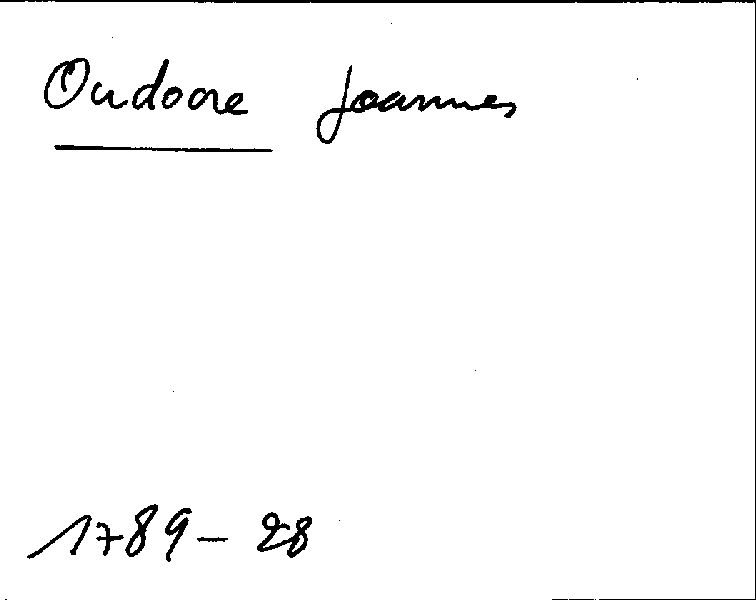 Oudoore Joannes
1789 - 28